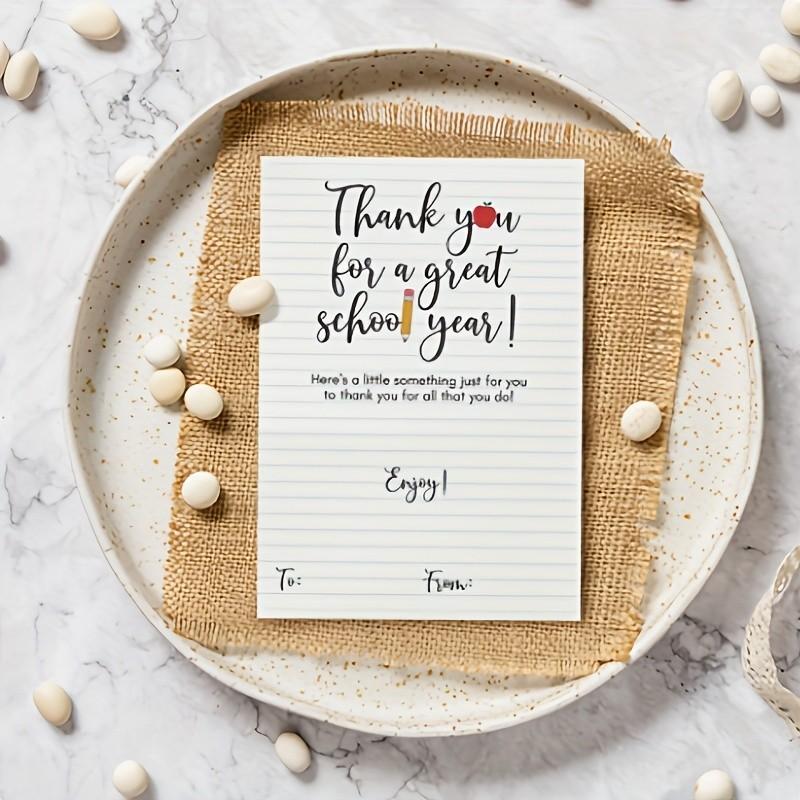 Thank you
for a great
school year!
Here's a little something just for you
to thank you for all that you do!
Enjoy!
To: From: